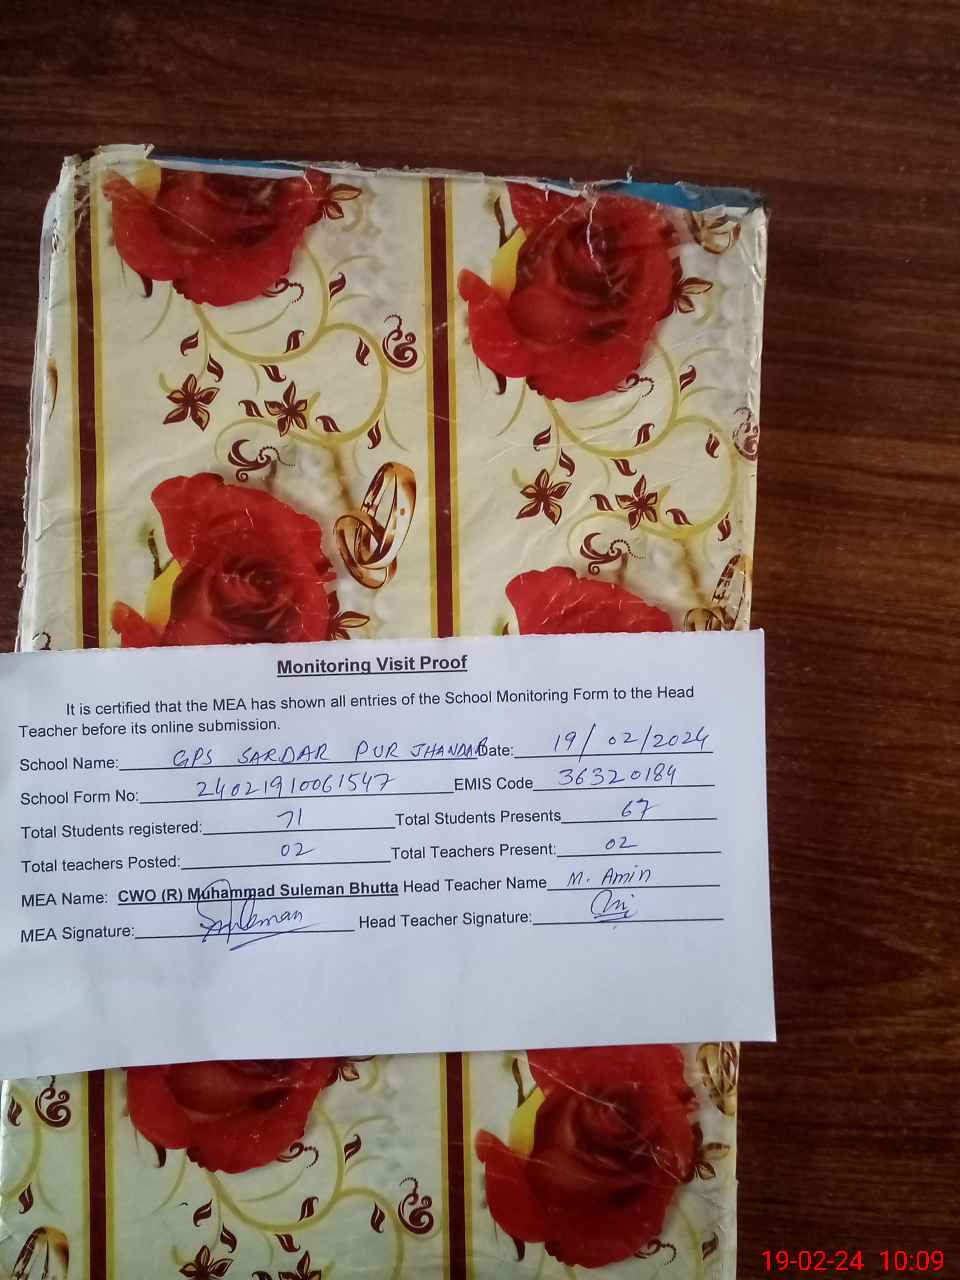 Monitoring Visit Proof
It is certified that the MEA has shown all entries of the School Monitoring Form to the Head
Teacher before its online submission.
School Name: GPS SARDAR PUR JHANDAR Date: 19/02/2024
School Form No: 24021910061547 EMIS Code 36320184
Total Students registered: 71 Total Students Presents 67
Total teachers Posted: 02 Total Teachers Present: 02
MEA Name: CWO (R) Muhammad Suleman Bhutta Head Teacher Name M. Amin
MEA Signature: Suleman Head Teacher Signature:
19-02-24 10:09